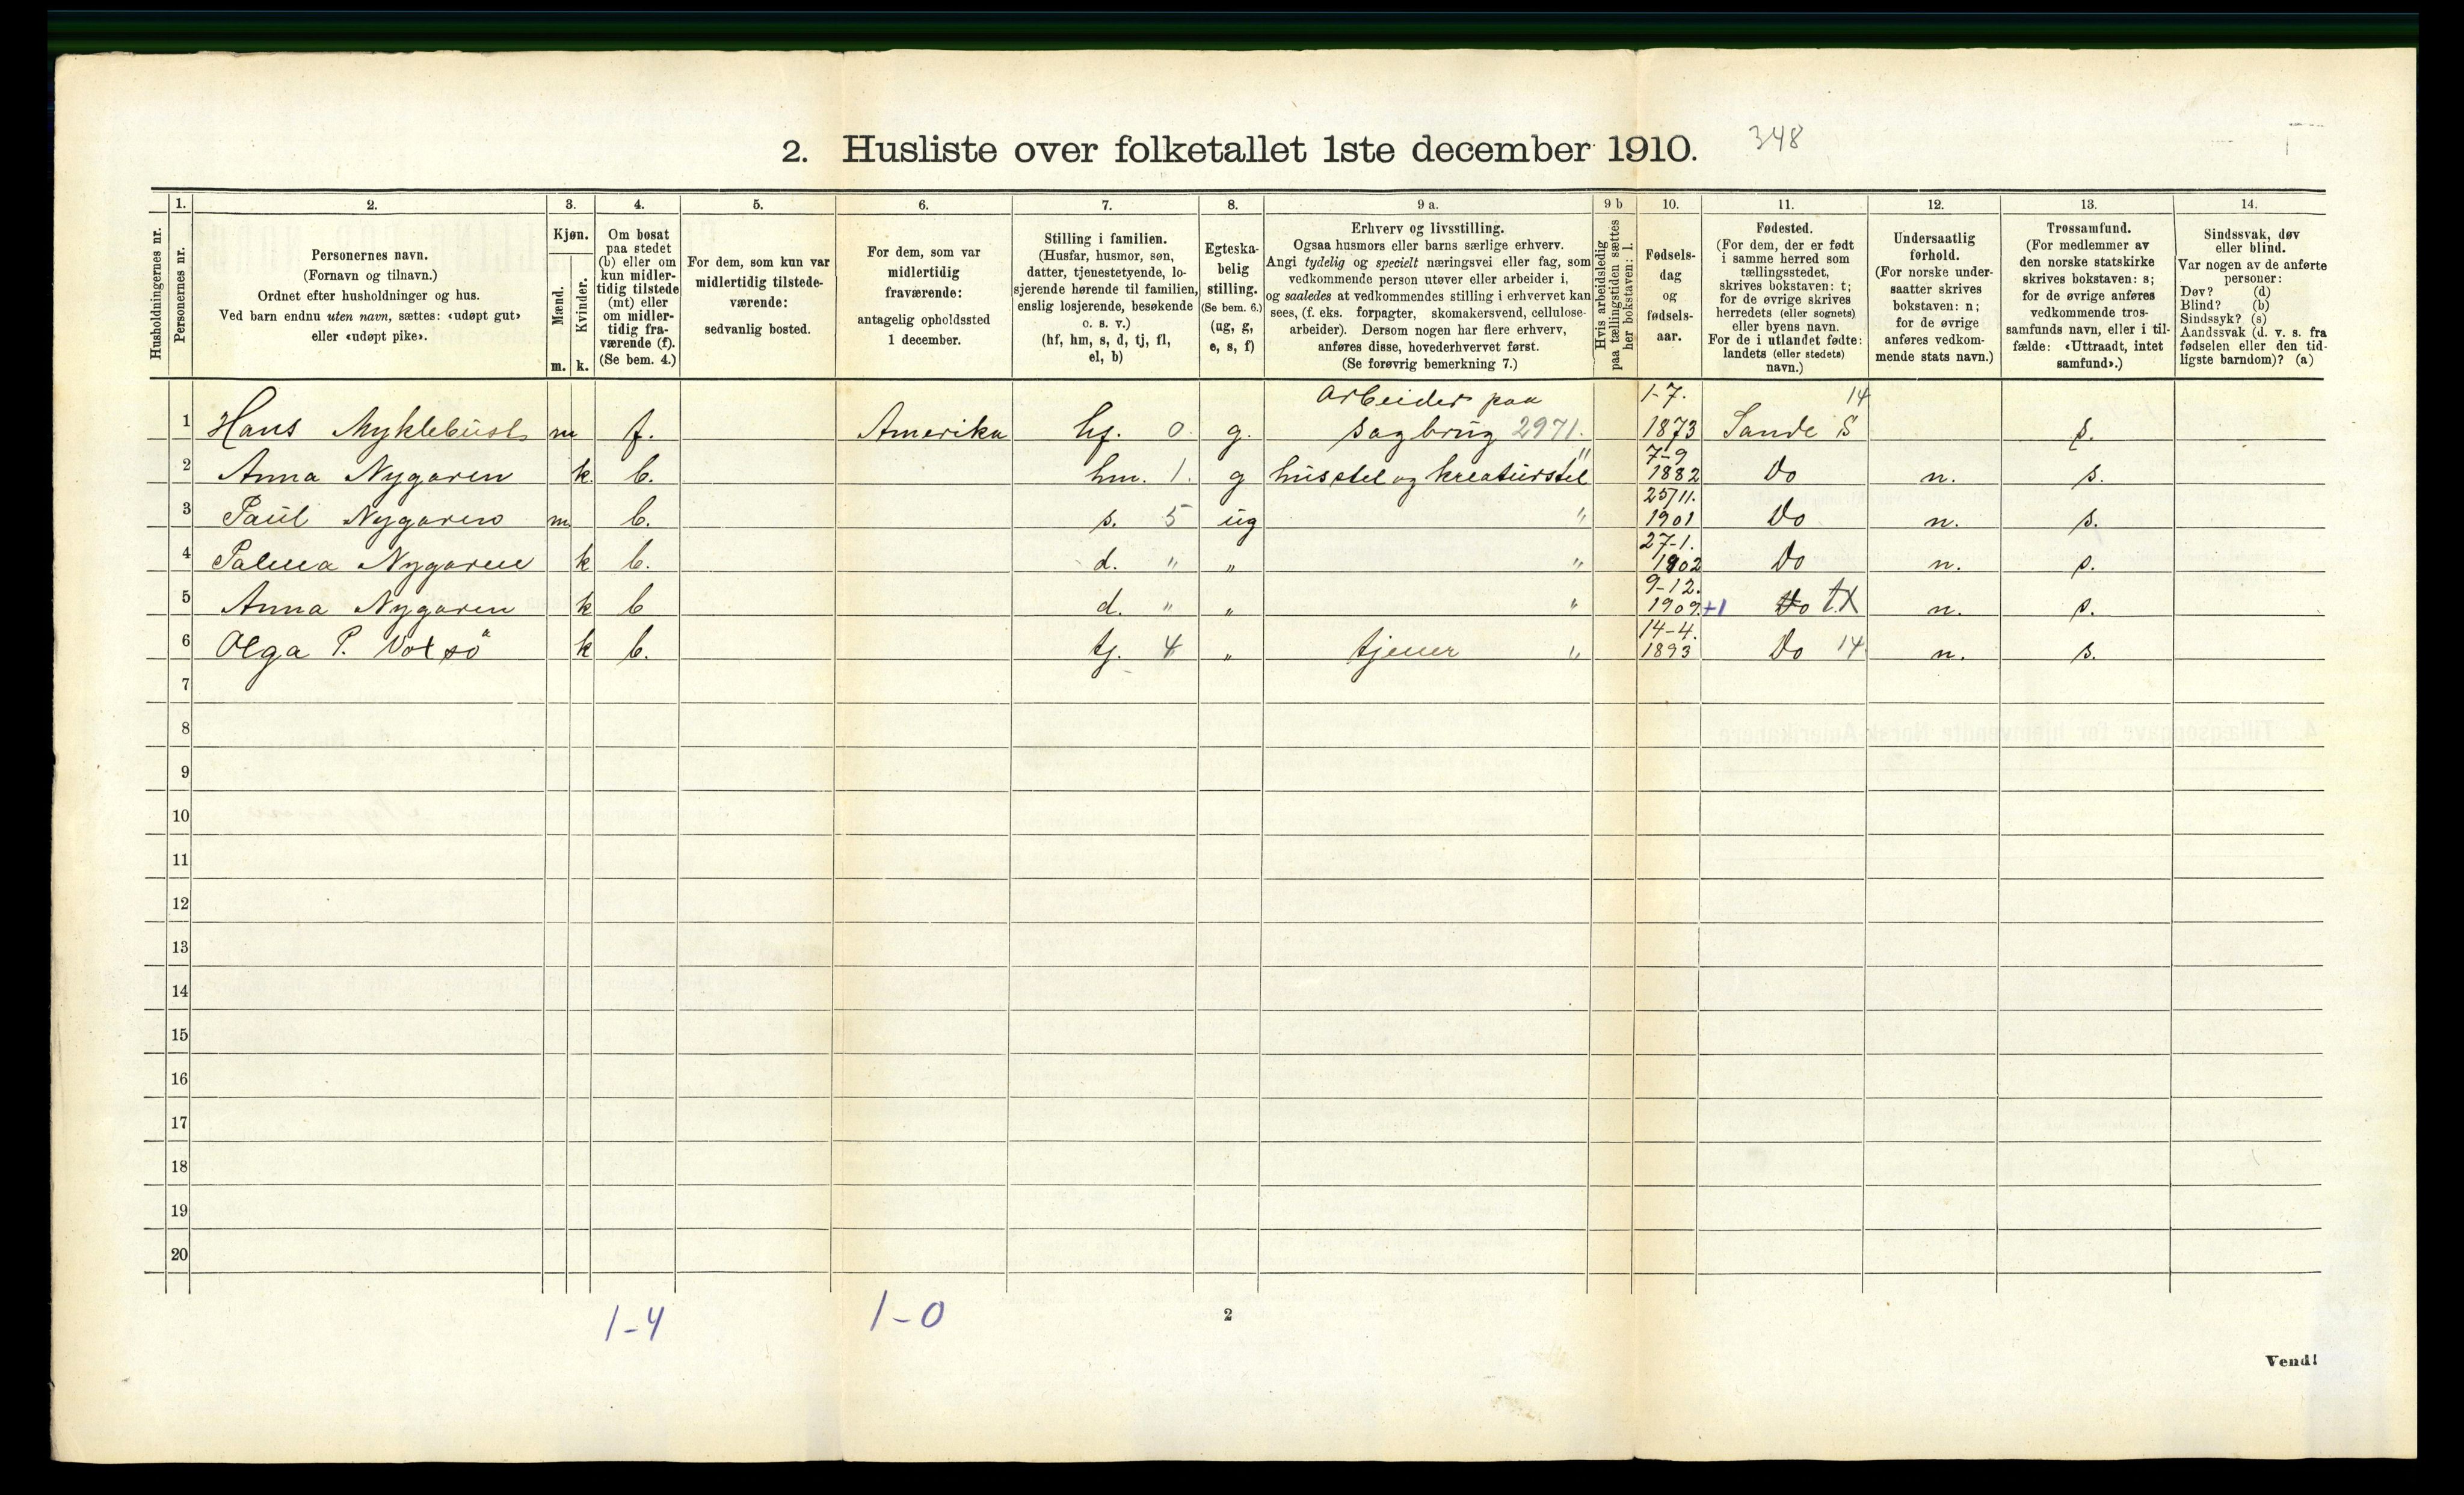 2. Husliste over folketallet 1ste december 1910. 348
1. 2. 3. 4. 5. 6. 7. 8. 9 a. 9 b 10. 11. 12. 13. 14.
Husholdningernes nr.
Personernes nr.
Personernes navn.
(Fornavn og tilnavn.)
Ordnet efter husholdninger og hus.
Ved barn endnu uten navn, sættes: «udøpt gut»
eller «udøpt pike».
Kjøn.
Mænd.
Kvinder.
m. k.
Om bosat
paa stedet
(b) eller om
kun midler-
tidig tilstede
(mt) eller
om midler-
tidig fra-
værende (f).
(Se bem. 4.)
For dem, som kun var
midlertidig tilstede-
værende:
sedvanlig bosted.
For dem, som var
midlertidig
fraværende:
antagelig opholdssted
1 december.
Stilling i familien.
(Husfar, husmor, søn,
datter, tjenestetyende, lo-
sjerende hørende til familien,
enslig losjerende, besøkende
o. s. v.)
(hf, hm, s, d, tj, fl,
el, b)
Egteska-
belig
stilling.
(Se bem. 6.)
(ug, g,
e, s, f)
Erhverv og livsstilling.
Ogsaa husmors eller barns særlige erhverv.
Angi tydelig og specielt næringsvei eller fag, som
vedkommende person utøver eller arbeider i,
og saaledes at vedkommendes stilling i erhvervet kan
sees, (f. eks. forpagter, skomakersvend, cellulose-
arbeider). Dersom nogen har flere erhverv,
anføres disse, hovederhvervet først.
(Se forøvrig bemerkning 7.)
Hvis arbeidsledig
paa tællingstiden sættes
her bokstaven: l.
Fødsels-
dag
og
fødsels-
aar.
Fødested.
(For dem, der er født
i samme herred som
tællingsstedet,
skrives bokstaven: t;
for de øvrige skrives
herredets (eller sognets)
eller byens navn.
For de i utlandet fødte:
landets (eller stedets)
navn.)
Undersaatlig
forhold.
(For norske under-
saatter skrives
bokstaven: n;
for de øvrige
anføres vedkom-
mende stats navn.)
Trossamfund.
(For medlemmer av
den norske statskirke
skrives bokstaven: s;
for de øvrige anføres
vedkommende tros-
samfunds navn, eller i til-
fælde: «Uttraadt, intet
samfund».)
Sindssvak, døv
eller blind.
Var nogen av de anførte
personer:
Døv? (d)
Blind? (b)
Sindssyk? (s)
Aandssvak (d. v. s. fra
fødselen eller den tid-
ligste barndom)? (a)
arbeider paa 1-7. 14
1 Hans Myklebust m f. Amerika hf. 0 g. sagbrug 2971. 1873 Sande S s.
7-9
2 Anna Nygaren k. b. hm. 1. g husstel og kreaturstel " 1882 Do n. s.
25/11.
3 Paul Nygaren m. b. s. 5 ug " 1901 Do n. s.
27-1.
4 Palma Nygaren k b. d. " " " 1902 Do n. s.
9-12.
5 Anna Nygaren k b d. " " " 1909. +1 Do t.X n. s.
14-4.
6 Olga P. Voksø k b. tj. 4 " tjener " 1893 Do 14. n. s.
7
8
9
10
11
12
13
14
15
16
17
18
19
20
1-4 1-0 2
Vend!